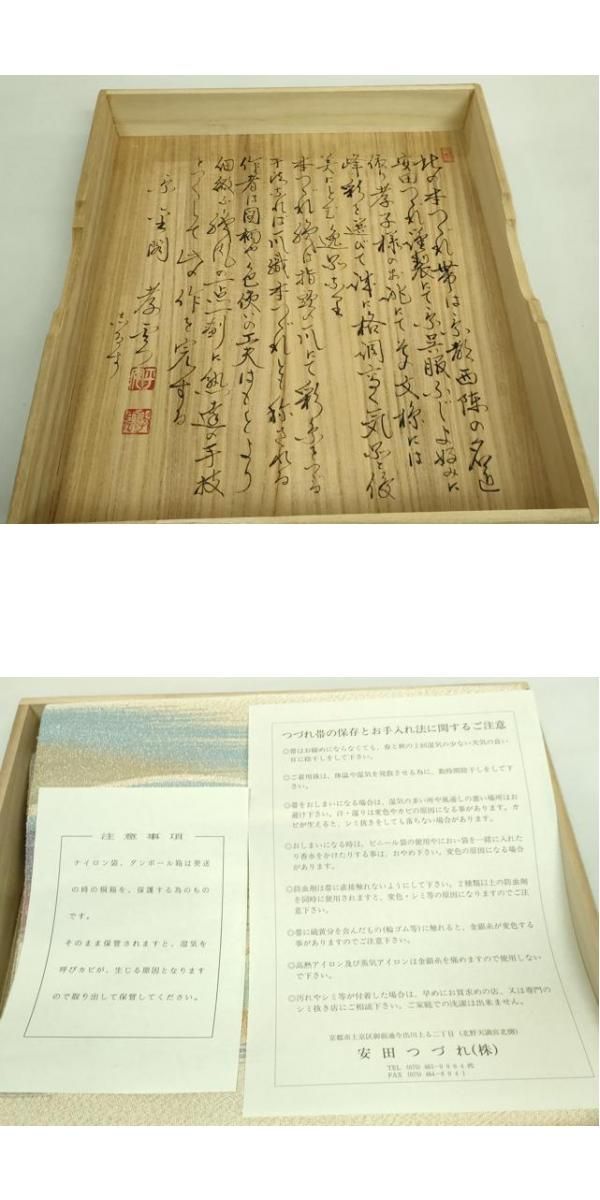 此の本つづれ帯は京都西陣の名匠
安田つづれ謹製にて京呉服ふじよ好みに
依り孝子様のお誂にて
峰彩を選びて誠に格調高く気品と優
美にとむ逸品
本つづれ織は指頭の爪にて彩糸を
爪織本つづれとも称される
作者は図柄や色使いの工夫はもとより
細緻な
つくして此の作を完する
つづれ帯の保存とお手入れ法に関するご注意
◎帯はお締めにならなくても、春と秋の2回湿気の少ない天気の良い
日に陰干しをして下さい。
◎ご着用後は、体温や湿気を発散させる為に、数時間陰干しをして下
さい。
◎帯をおしまいになる場合は、湿気の多い所や風通しの悪い場所はお
避け下さい。汗・湿りは変色やカビの原因になる事があります。カ
ビが生えると、シミ抜きをしても落ちない場合があります。
◎おしまいになる時は、ビニール袋の使用やにおい袋を一緒に入れた
り香水をかけたりする事は、おやめ下さい。変色の原因になる場合
があります。
◎防虫剤は帯に直接触れないようにして下さい。2種類以上の防虫剤
を同時に使用されますと、変色・シミ等の原因になりますのでご注
意下さい。
◎帯に硫黄分を含んだもの(輪ゴム等)に触れると、金銀糸が変色する
事がありますのでご注意下さい。
◎高熱アイロン及び蒸気アイロンは金銀糸を痛めますので使用しない
で下さい。
◎汚れやシミ等が付着した場合は、早めにお買求めの店、又は専門の
シミ抜き店にご相談下さい。ご家庭での洗濯は出来ません。
京都市上京区御前通今出川上る二丁目(北野天満宮北側)
安田つづれ(株)
TEL (075)
FAX (075)
注意事項
ナイロン袋、ダンボール箱は発送
の時の桐箱を、保護する為のもの
です。
そのまま保管されますと、湿気を
呼びカビが、生じる原因となります
ので取り出して保管してください。